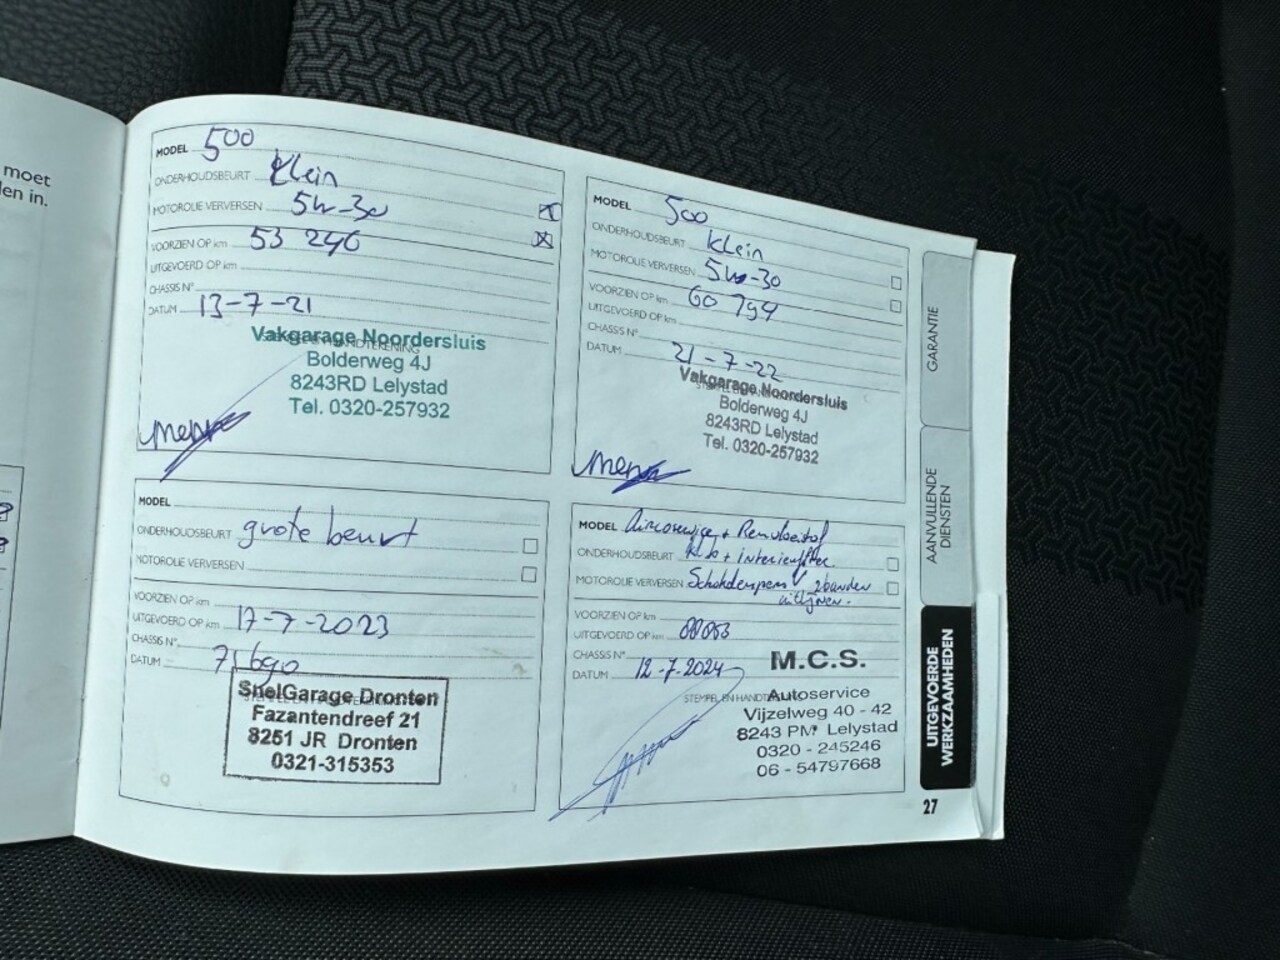 moet
en in.
MODEL 500
ONDERHOUDSBEURT klein
MOTOROLIE VERVERSEN 5w-30
VOORZIEN OP km 53 246
UITGEVOERD OP km
CHASSIS N°
DATUM 13-7-21
STEMPEL EN HANDTEKENING
Vakgarage Noordersluis
Bolderweg 4J
8243RD Lelystad
Tel. 0320-257932
MODEL 500
ONDERHOUDSBEURT klein
MOTOROLIE VERVERSEN 5w-30
VOORZIEN OP km 60 794
UITGEVOERD OP km
CHASSIS N°
DATUM 21-7-22
Vakgarage Noordersluis
Bolderweg 4J
8243RD Lelystad
Tel. 0320-257932
MODEL
ONDERHOUDSBEURT grote beurt
MOTOROLIE VERVERSEN
VOORZIEN OP km
UITGEVOERD OP km 17-7-2023
CHASSIS N°
DATUM 75690
SnelGarage Dronten
Fazantendreef 21
8251 JR Dronten
0321-315353
MODEL Aircoservice + Remvloeistof
ONDERHOUDSBEURT + interieurfilter
MOTOROLIE VERVERSEN Schokdempers V 2banden
uitlijnen.
VOORZIEN OP km
UITGEVOERD OP km 88883
CHASSIS N°
DATUM 12-7-2024
STEMPEL EN HANDTEKENING
M.C.S.
Autoservice
Vijzelweg 40 - 42
8243 PM Lelystad
0320 - 245246
06 - 54797668
GARANTIE
AANVULLENDE
DIENSTEN
UITGEVOERDE
WERKZAAMHEDEN
27